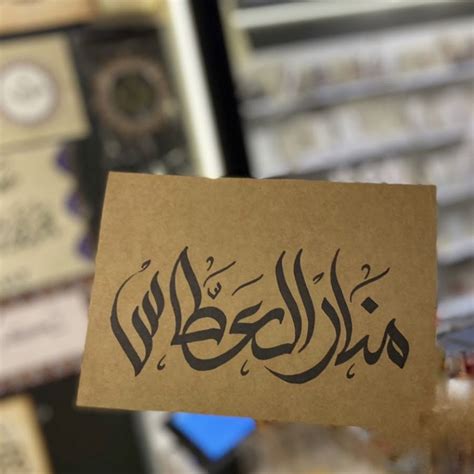 منار العطّاس